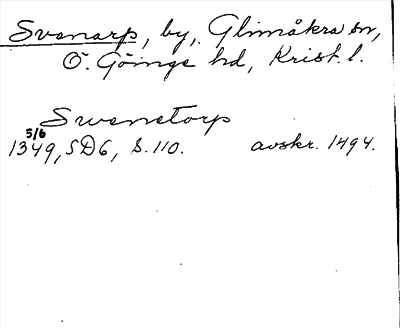 Svanarp, by, Glimåkra sn,
Ö. Göinge hd, Krist. l.
Swanetorp
5/6
1349, SD6, s. 110. avskr. 1494.